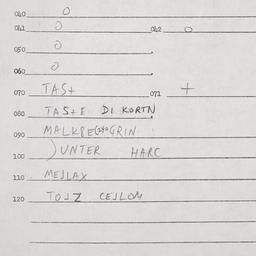 040 0
041 0 042 0
050 0
060 0
070 TAST 071 +
080 TASTE DI KORTN
090
100 JUNTER HARC
110 MEJLAX
120 TOJZ CEJLOM